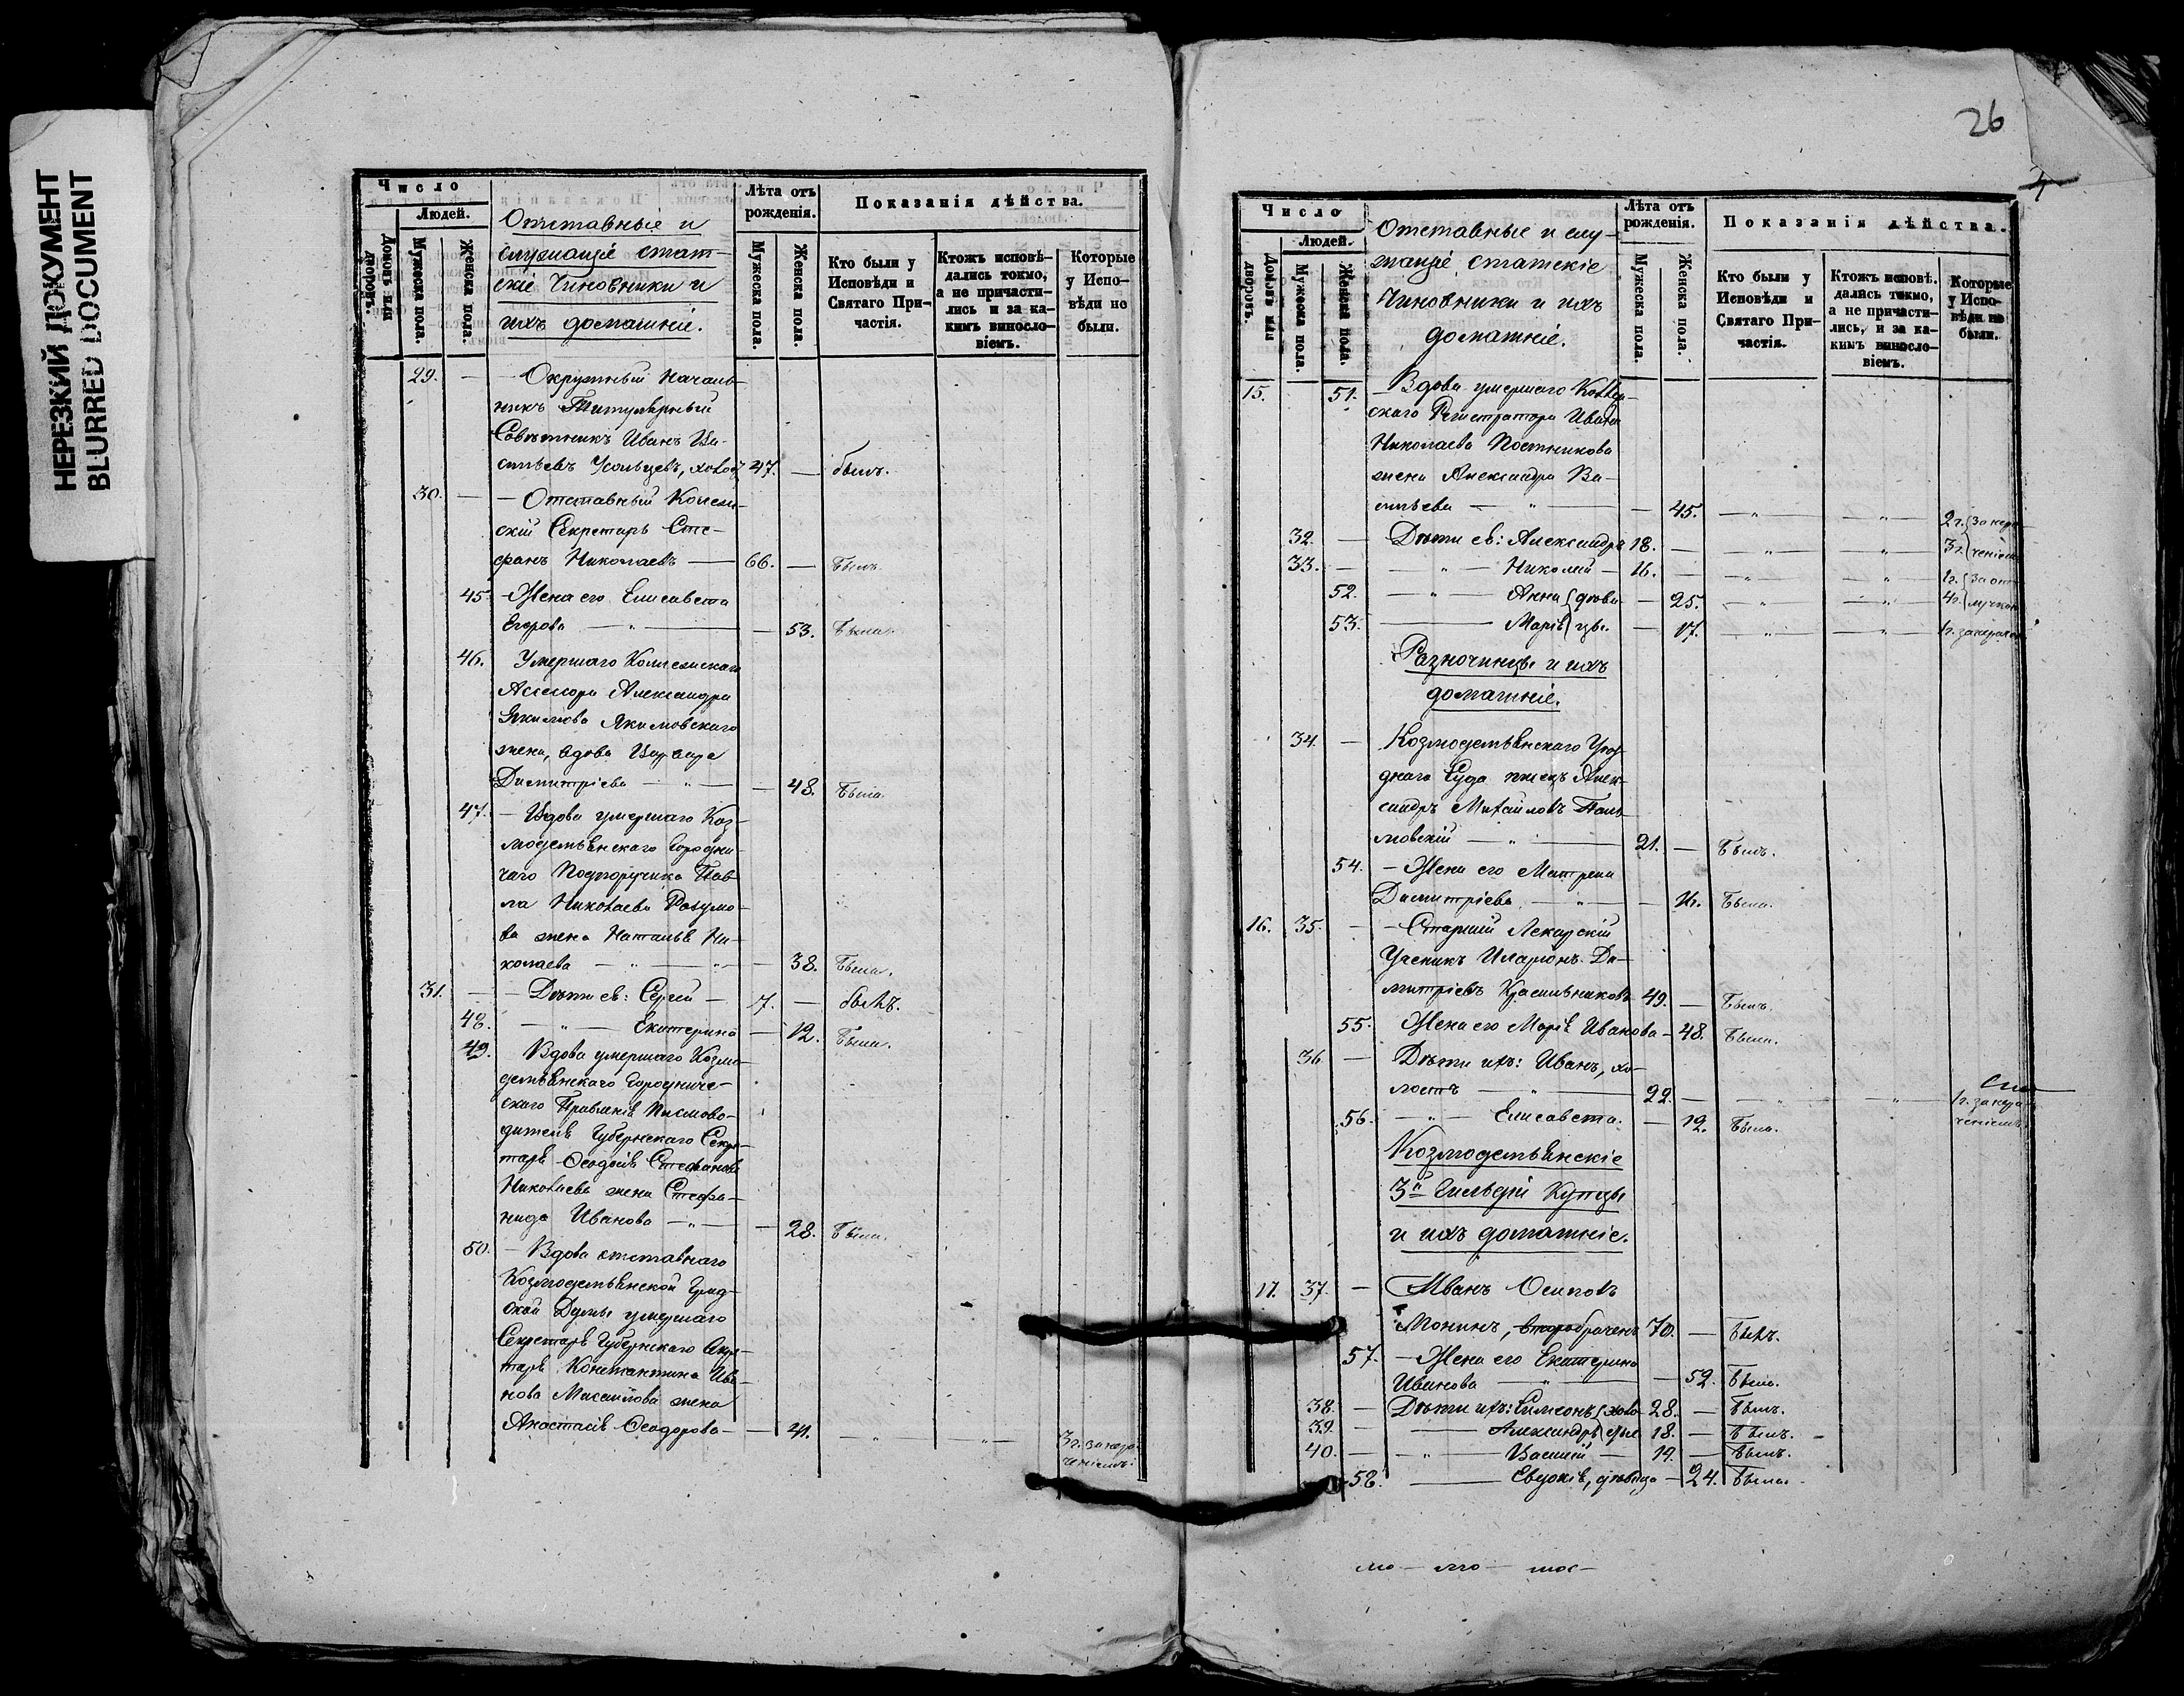 НЕРЕЗКИЙ ДОКУМЕНТ
BLURRED DOCUMENT
Число
Людей.
Домовъ или дворовъ.
Мужеска пола.
Женска пола.
Отставные и
служащіе стат-
скіе Чиновники и
ихъ домашніе.
Лѣта отъ рожденія.
Мужеска пола.
Женска пола.
Показанія дѣйства.
Кто были у Исповѣди и Святаго Причастія.
Ктожъ исповѣ-
дались токмо,
а не причасти-
лись и за ка-
кимъ винosло-
віемъ.
Которые
у Испо-
вѣди не
были.
29. — Окружный Началь-
никъ Титулярный
Совѣтникъ Иванъ Ва-
сильевъ Усольцевъ, холост 47. — былъ.
30. — — Отставный Коллеж-
скій Секретарь Сте-
фанъ Николаевъ — 66. — Былъ.
45. — Жена его Елисавета
Егорова — " — — 53. Была.
46. Умершаго Коллежскаго
Ассесора Александра
Якимова Якимовскаго
жена, вдова Варвара
Димитріева — " — — 48. Была.
47. — Вдова умершаго Коз-
модемьянскаго Городни-
чаго Подпоручика Пав-
ла Николаева Разумо-
ва жена Наталья Ни-
колаева — " — " — 38. Была.
31. — — Дѣти ея: Сергѣй — 7. — былъ.
48. — " — Екатерина — 12. Была.
49. Вдова умершаго Козмо-
демьянскаго Городниче-
скаго Правленія Письмово-
дителя Губернскаго Секре-
таря Ѳеодосія Стефанова
Николаева жена Стефа-
нида Иванова — " — — 28. Была.
50. — Вдова отставнаго
Козмодемьянской Град-
ской Думы умершаго
Секретаря Губернскаго Секре-
таря Константина Ива-
нова Михайлова жена
Анастасія Ѳеодорова — — 41. — " — " — 3 г. за нера-
ченіемъ.
26
4
Число
Людей.
Домовъ или дворовъ.
Мужеска пола.
Женска пола.
Отставные и слу-
жащіе статскіе
Чиновники и ихъ
домашніе.
Лѣта отъ рожденія.
Мужеска пола.
Женска пола.
Показанія дѣйства.
Кто были у
Исповѣди и
Святаго При-
частія.
Ктожъ исповѣ-
дались токмо,
а не причасти-
лись, и за ка-
кимъ винosло-
віемъ.
Которые
у Испо-
вѣди не
были.
15. 51. — Вдова умершаго Коллеж-
скаго Регистратора Ивана
Николаева Постникова
жена Александра Ва-
сильева — " — — 45. — " — " — 2 г. за нера-
32. — Дѣти ея: Александръ 18. — " — " — 3 г. ченіемъ
33. — — " — Николай — 16. — — " — " — 1 г. за от-
52. — " — Анна дѣви- — 25. — " — " — 4 г. лучкою
53. — Марія цы. — 17. — " — " — 1 г. за нерач.
Разночинцы и ихъ
домашніе.
34. — Козмодемьянскаго Уѣз-
днаго Суда писецъ Алек-
сандръ Михайловъ Паль-
мовскій — " — 21. — Былъ.
54. — Жена его Матрена
Димитріева — " — — 16. Была.
16. 35. — — Старшій Лекарскій
Ученикъ Иларіонъ Ди-
митріевъ Красильниковъ 49. — Былъ.
55. Жена его Марія Иванова — 48. Была.
36 — Дѣти ихъ: Иванъ, хо-
лостъ — " — 22. — — " — " — 1 г. за нера-
ченіемъ
56. — " — Елисавета. — 12. Была.
Козмодемьянскіе
3й Гильдіи Купцы
и ихъ домашніе.
17. 37. — Иванъ Осиповъ
Монинъ, второбраченъ 70. — Былъ.
57. — Жена его Екатерина
Иванова — " — — 52. Была.
38. — Дѣти ихъ: Симеонъ холо- 28. — Былъ.
39. — — Александръ стые 18. — Былъ.
40. — — " — Василій — 12. — Былъ.
58. — Евдокія, дѣвица — 24. Была.